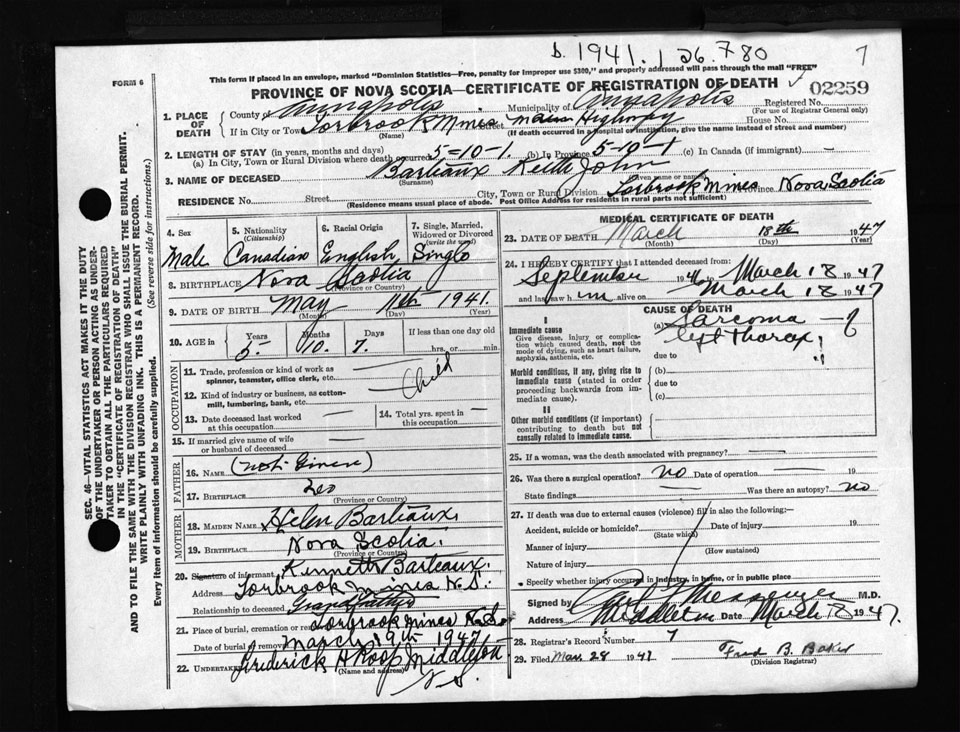 b. 1941.126.780
7
FORM 6
This form if placed in an envelope, marked "Dominion Statistics—Free, penalty for improper use $300," and properly addressed will pass through the mail "FREE"
PROVINCE OF NOVA SCOTIA—CERTIFICATE OF REGISTRATION OF DEATH
02259
1. PLACE OF DEATH
County of Annapolis Municipality of Annapolis Registered No.
(For use of Registrar General only)
If in City or Town Torbrook Mines Street Main Highway House No.
(Name) (If death occurred in a hospital or institution, give the name instead of street and number)
2. LENGTH OF STAY (in years, months and days)
(a) In City, Town or Rural Division where death occurred 5-10-1. (b) In Province 5-10-1 (c) In Canada (if immigrant) —
3. NAME OF DECEASED Barteaux Keith John
(Surname) (Given name or names)
RESIDENCE No. Street City, Town or Rural Division Torbrook Mines Province Nova Scotia
(Residence means usual place of abode. Post Office Address for residents in rural parts not sufficient)
4. Sex 5. Nationality (Citizenship) 6. Racial Origin 7. Single, Married, Widowed or Divorced (write the word)
Male Canadian English Single
8. BIRTHPLACE Nova Scotia
(Province or Country)
9. DATE OF BIRTH May 11th 1941.
(Month) (Day) (Year)
10. AGE in Years Months Days If less than one day old
5. 10. 7. hrs. or min.
OCCUPATION
11. Trade, profession or kind of work as spinner, teamster, office clerk, etc. —
Child
12. Kind of industry or business, as cotton-mill, lumbering, bank, etc. —
13. Date deceased last worked at this occupation —
14. Total yrs. spent in this occupation —
15. If married give name of wife or husband of deceased —
FATHER
16. NAME (not Given)
17. BIRTHPLACE
(Province or Country)
MOTHER
18. MAIDEN NAME Helen Barteaux.
19. BIRTHPLACE Nova Scotia.
(Province or Country)
20. Signature of informant Kenneth Barteaux.
Address Torbrook Mines N.S.
Relationship to deceased Grandfather
21. Place of burial, cremation or removal Torbrook Mines N.S.
Date of burial or removal March 19th 1947
22. UNDERTAKER Frederick H Roop Middleton
(Name and address)
N.S.
MEDICAL CERTIFICATE OF DEATH
23. DATE OF DEATH March 18th 1947
(Month) (Day) (Year)
24. I HEREBY CERTIFY that I attended deceased from:
September 1946 to March 18 1947
and last saw him alive on March 18 1947
CAUSE OF DEATH
I
Immediate cause
Give disease, injury or complication which caused death, not the mode of dying, such as heart failure, asphyxia, asthenia, etc.
(a) Sarcoma — ?
left Thorax
due to
Morbid conditions, if any, giving rise to immediate cause (stated in order proceeding backwards from immediate cause).
(b)
due to
(c)
II
Other morbid conditions (if important) contributing to death but not causally related to immediate cause.
25. If a woman, was the death associated with pregnancy? —
26. Was there a surgical operation? no Date of operation — 19
State findings — Was there an autopsy? no
27. If death was due to external causes (violence) fill in also the following:—
Accident, suicide or homicide? Date of injury 19
(State which)
Manner of injury
(How sustained)
Nature of injury
Specify whether injury occurred in industry, in home, or in public place
Signed by Messenger M.D.
Address Middleton Date March 18 1947.
28. Registrar's Record Number 7
29. Filed Mar. 28 1947 Fred B. Baker
(Division Registrar)
SEC. 46—VITAL STATISTICS ACT MAKES IT THE DUTY OF THE UNDERTAKER OR PERSON ACTING AS UNDERTAKER TO OBTAIN ALL THE PARTICULARS REQUIRED IN THE "CERTIFICATE OF REGISTRATION OF DEATH" AND TO FILE THE SAME WITH THE DIVISION REGISTRAR WHO SHALL ISSUE THE BURIAL PERMIT.
WRITE PLAINLY WITH UNFADING INK. THIS IS A PERMANENT RECORD.
Every item of information should be carefully supplied. (See reverse side for instructions.)